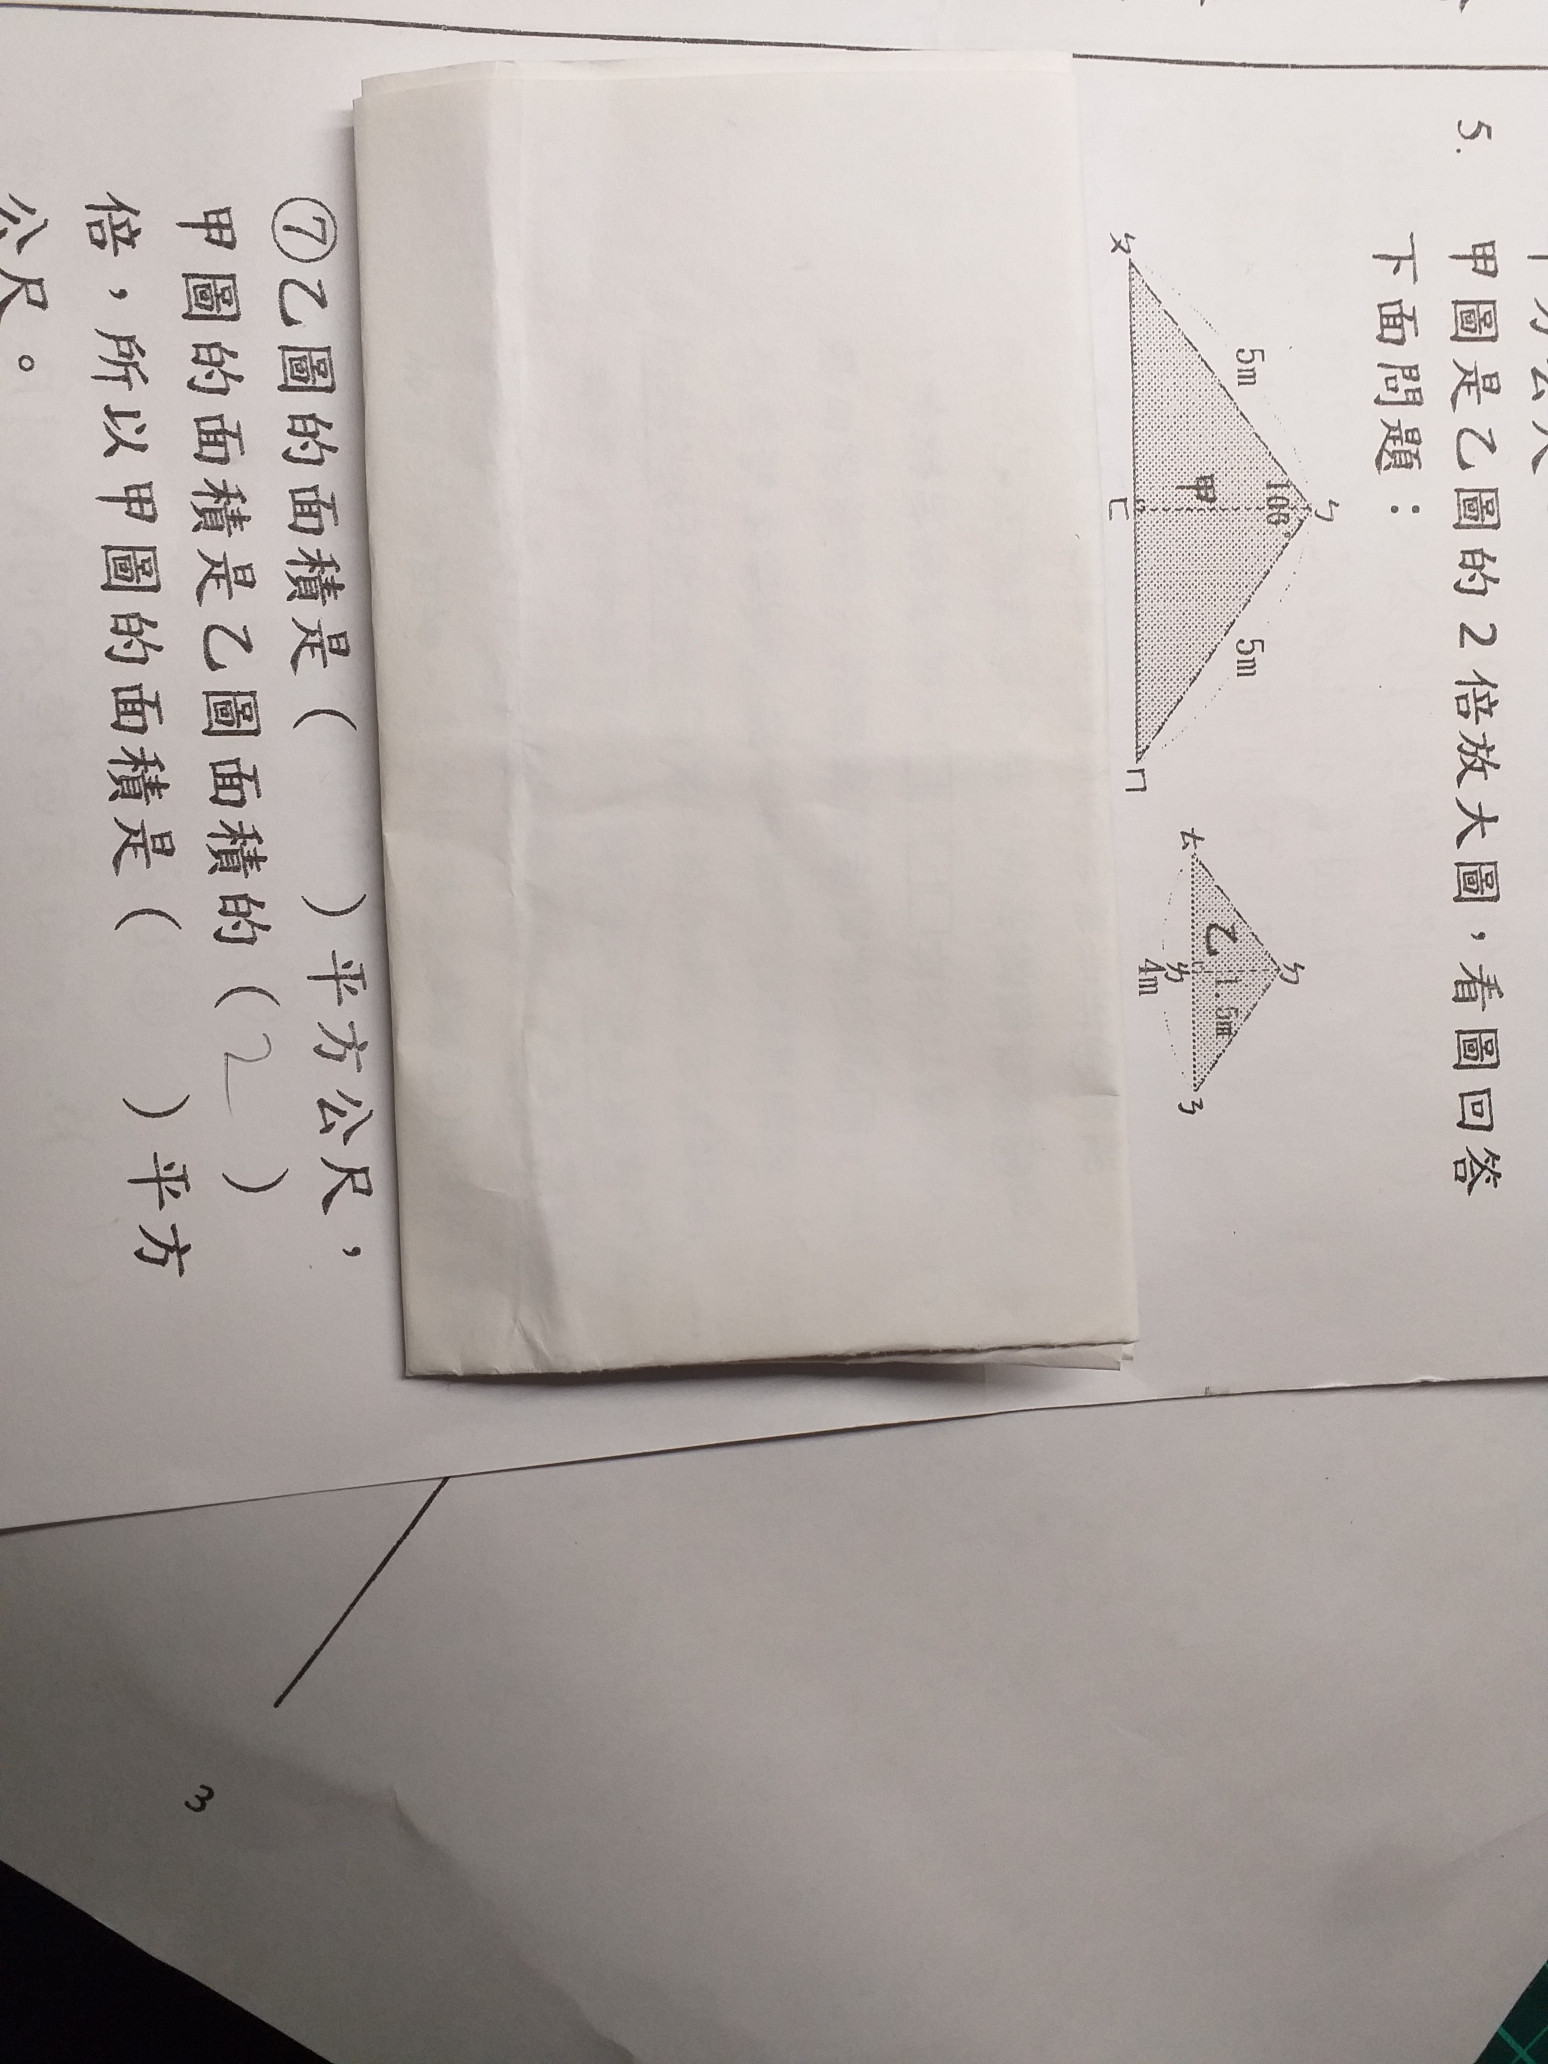 5. 甲圖是乙圖的2倍放大圖，看圖回答
下面問題：
ㄅ
108°
5m
5m
甲
ㄆ
ㄈ
ㄇ
ㄉ
1.5m
乙
ㄊ
ㄌ
ㄋ
4m
⑦乙圖的面積是（ ）平方公尺，
甲圖的面積是乙圖面積的（2）
倍，所以甲圖的面積是（ ）平方
公尺。
3